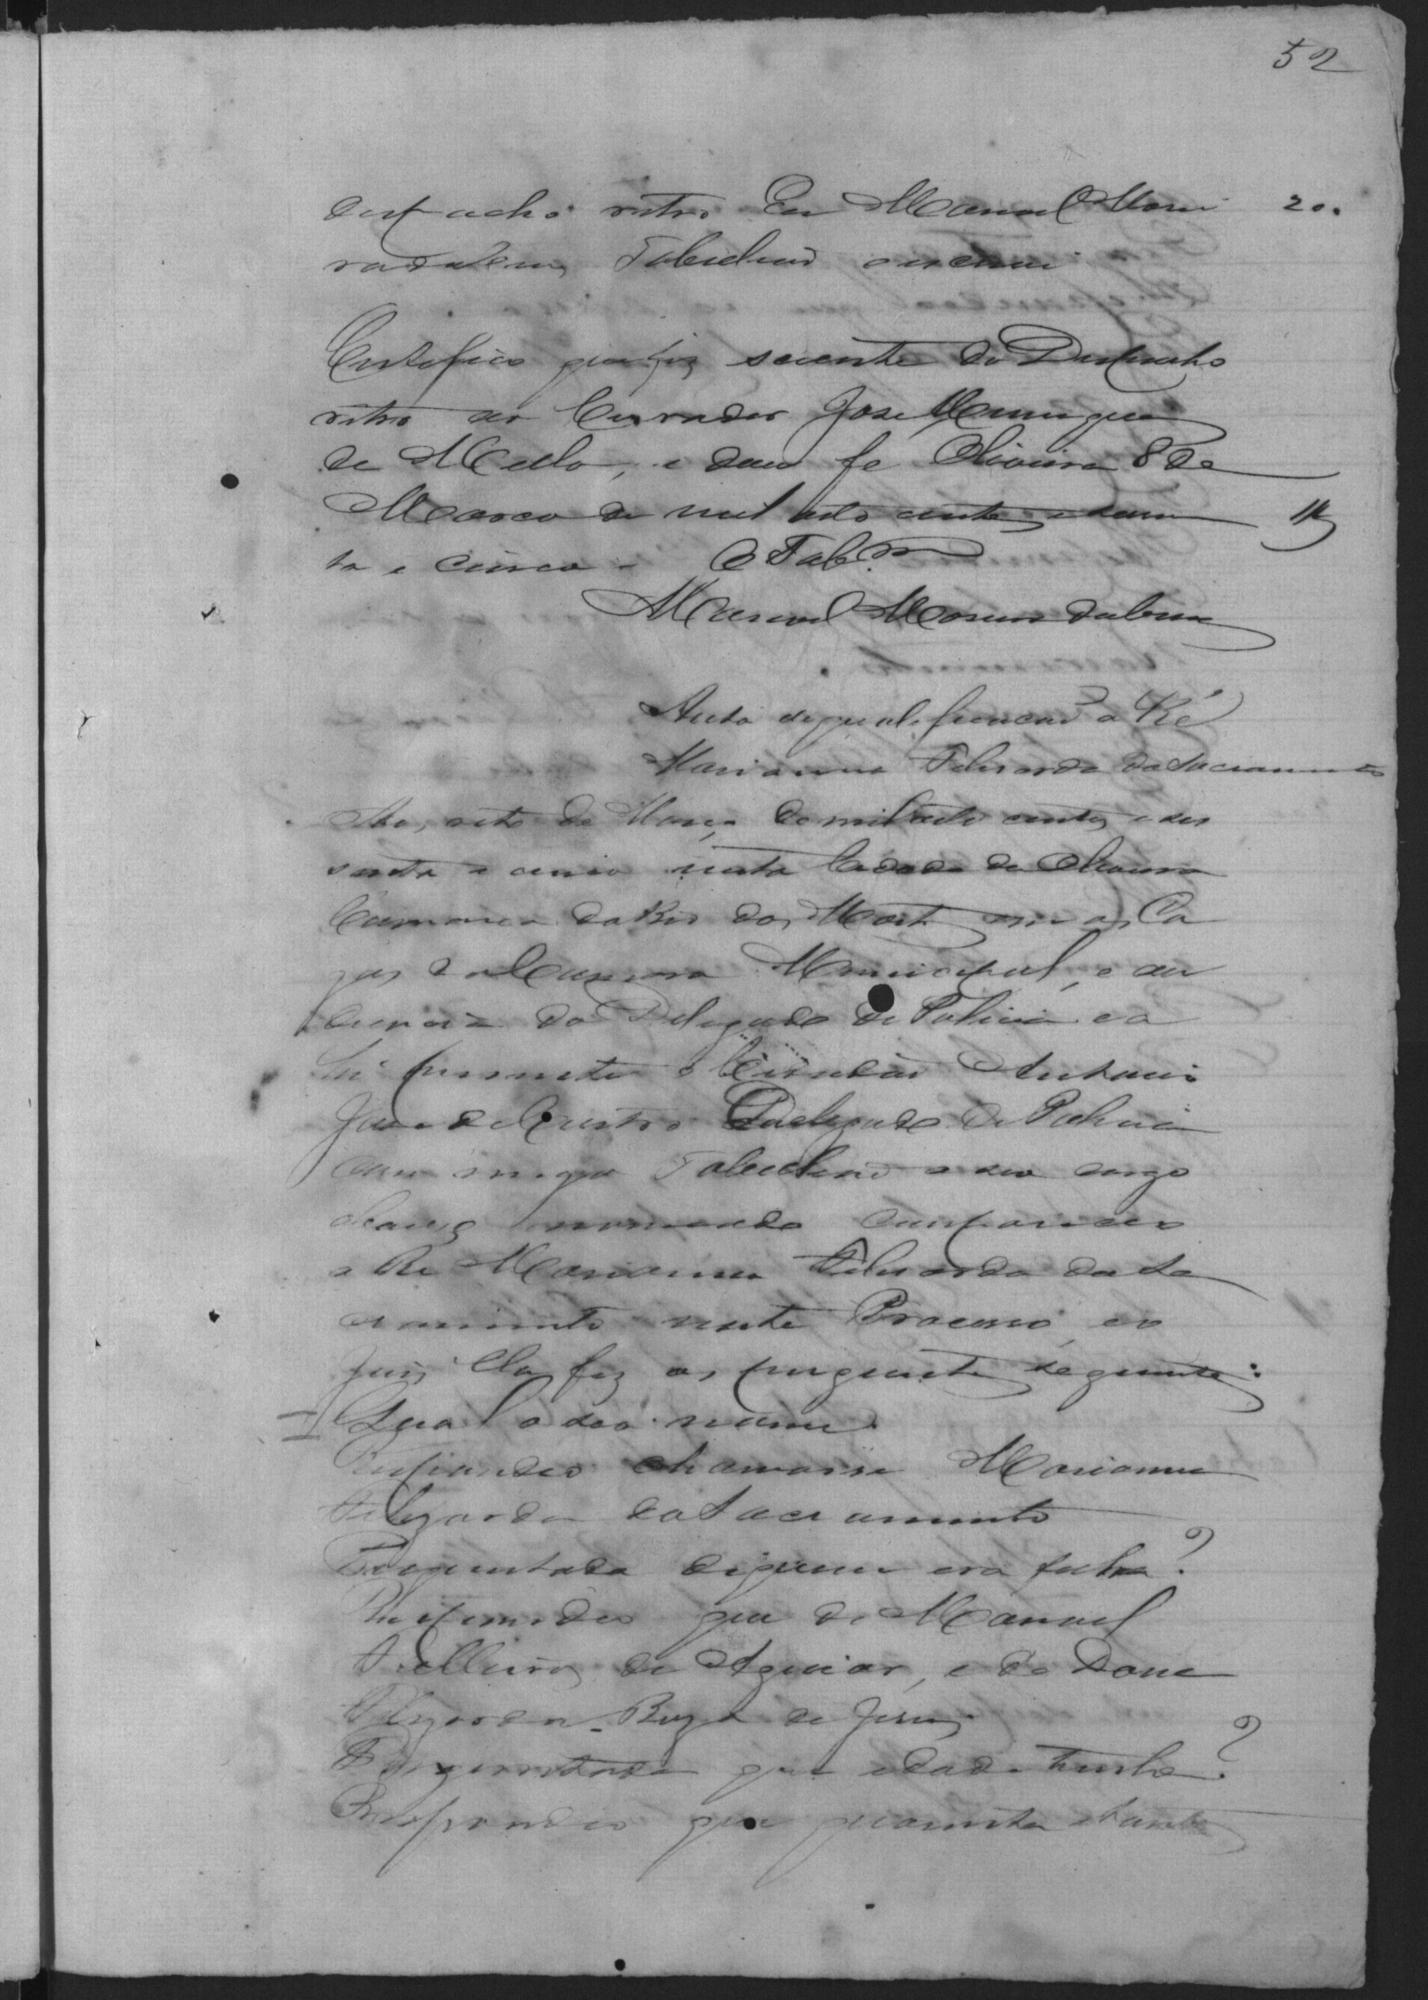 52
despacho retro. Eu Manoel Morei 20.
radalem, Tabeliaõ escrevi
Certifico que fiz sciente do Despacho
retro ao Curador José
de Mello, e dou fe Oliveira 8 de
Março de mil oito centos e sessen
ta e cinco - O Tab.m
Manoel Moreira
Auto de qualificacaõ a Ré
Marianna Felisarda do Sacramento
Aos oito de Março de mil oito centos e ses
senta e cinco nesta Cidade de Oliveira
Comarca do Rio das Mortes em os Pa
ços da Camara Municipal, e au
diencia do Delegado de Policia e a
hi presente o Cidadaõ Antonio
José de Castro Delegado de Policia
com migo Tabeliaõ a seo cargo
abaixo nomeado compareceo
a Ré Marianna Felisarda do Sa
cramento neste Processo, e o
Juiz lhe fez as perguntas seguintes:
Qual o seo nome.
Respondeo chamarse Marianna
Felizarda do Sacramento
Perguntada de quem era filha?
Respondeo que de Manoel
de Aguiar, e de Dona
Felizarda Roza de Jesus
Perguntada que edade tinha?
Respondeo que quarenta e tantos